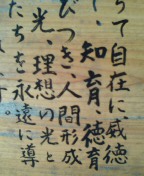 って自在に威徳
、知育徳育
びつき、人間形成
光、理想の光と
たちを永遠に導
す。